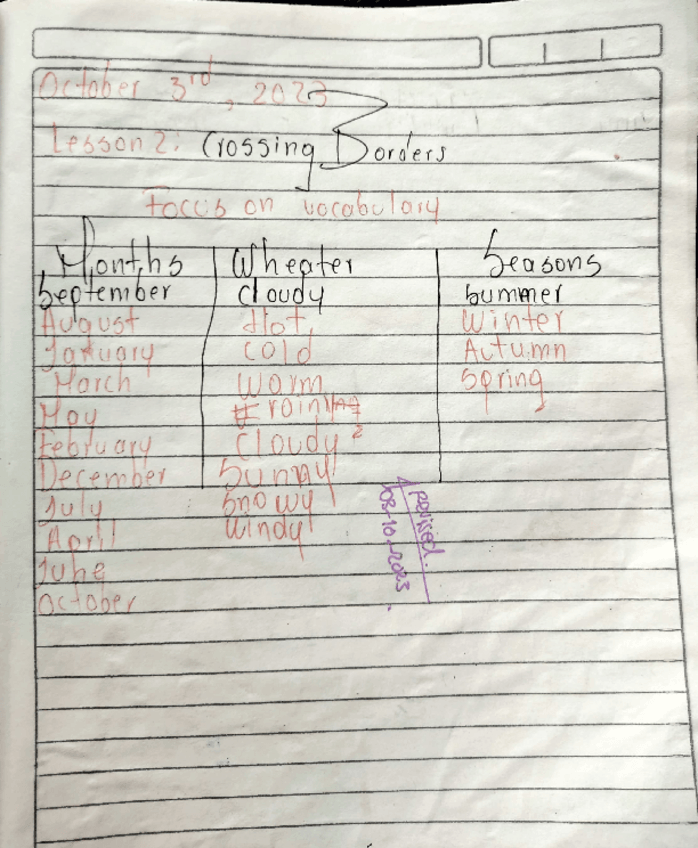 October 3rd, 2023
Lesson 2: Crossing Borders
Focus on vocabulary
Months Wheater Seasons
September cloudy summer
August Hot, Winter
January cold Autumn
March warm Spring
May rain
February cloudy 2
December Sunny
July Snowy
April Windy
June
October
revised.
03-10-2023